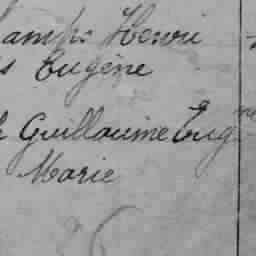 Henri
Eugène
Guillaume Eug
Marie